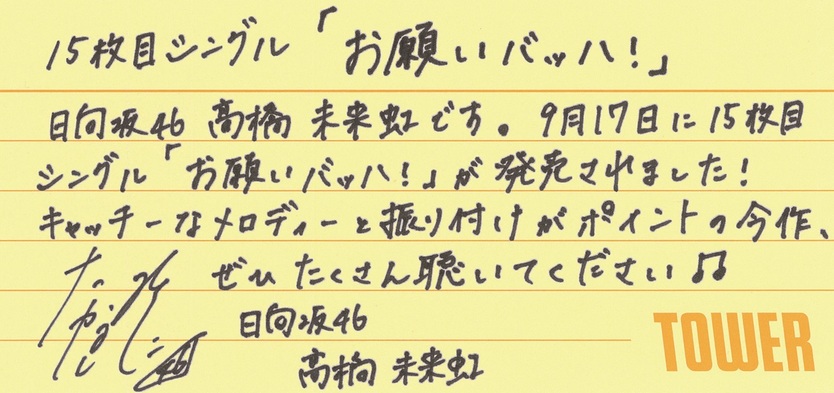 15枚目シングル「お願いバッハ！」
日向坂46 髙橋 未来虹です。9月17日に15枚目
シングル「お願いバッハ！」が発売されました！
キャッチーなメロディーと振り付けがポイントの今作、
ぜひ たくさん聴いてください♫
日向坂46
髙橋 未来虹
46
TOWER